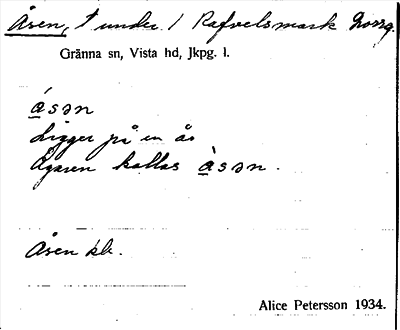 Åsen, t under 1 Rafvelsmark Norrg.
Gränna sn, Vista hd, Jkpg. l.
á̱sən
Ligger på en ås
Ägaren kallas à̱sən.
Åsen kb.
Alice Petersson 1934.